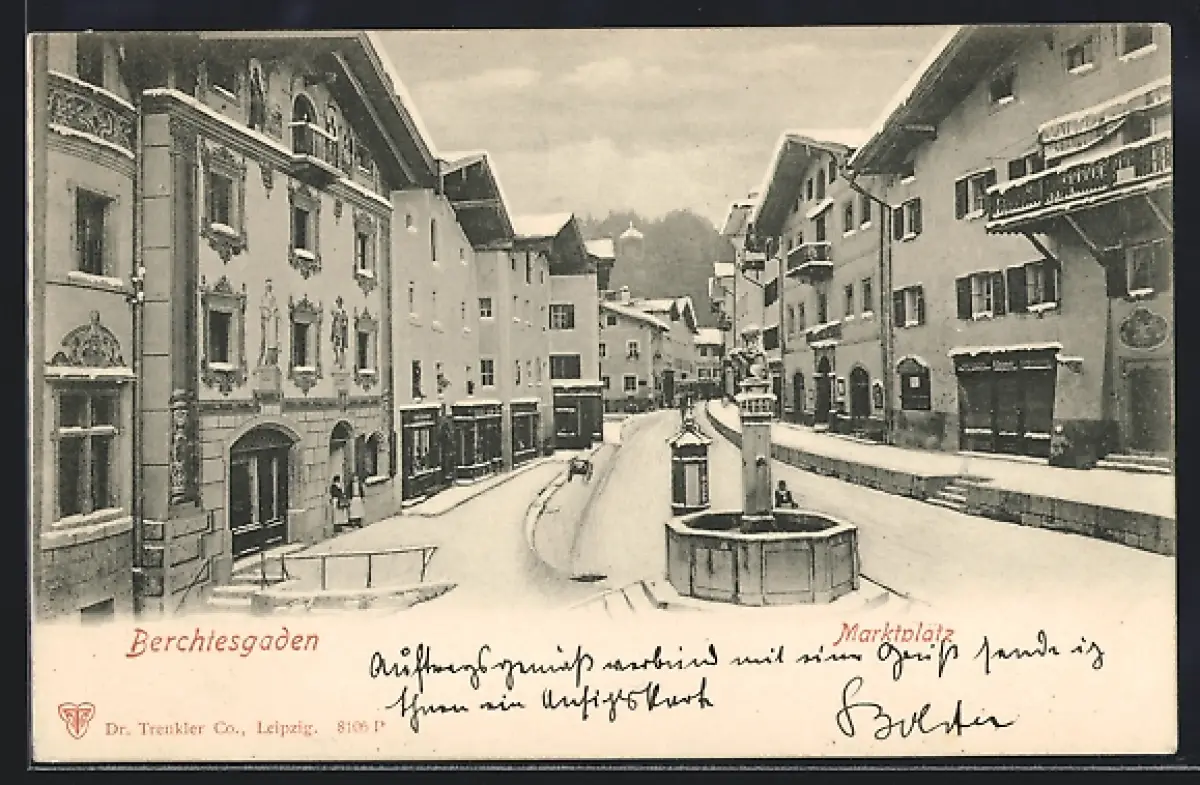 Berchtesgaden
Marktplatz
Auftragsgemäß verbind mit eine Gruß sende ich
Ihnen ein Ansichtskarte
Dr. Trenkler Co., Leipzig. 8106 P